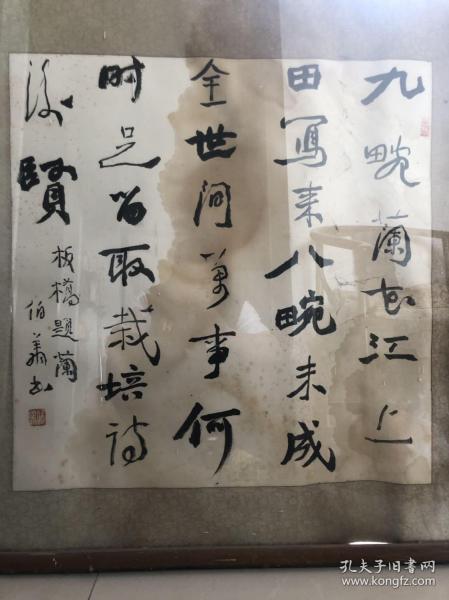 九畹蘭花江上
田寫来八畹未成
全世间萬事何
时足留取栽培待
後賢
板橋題蘭
伯书
孔夫子旧书网
www.kongfz.com